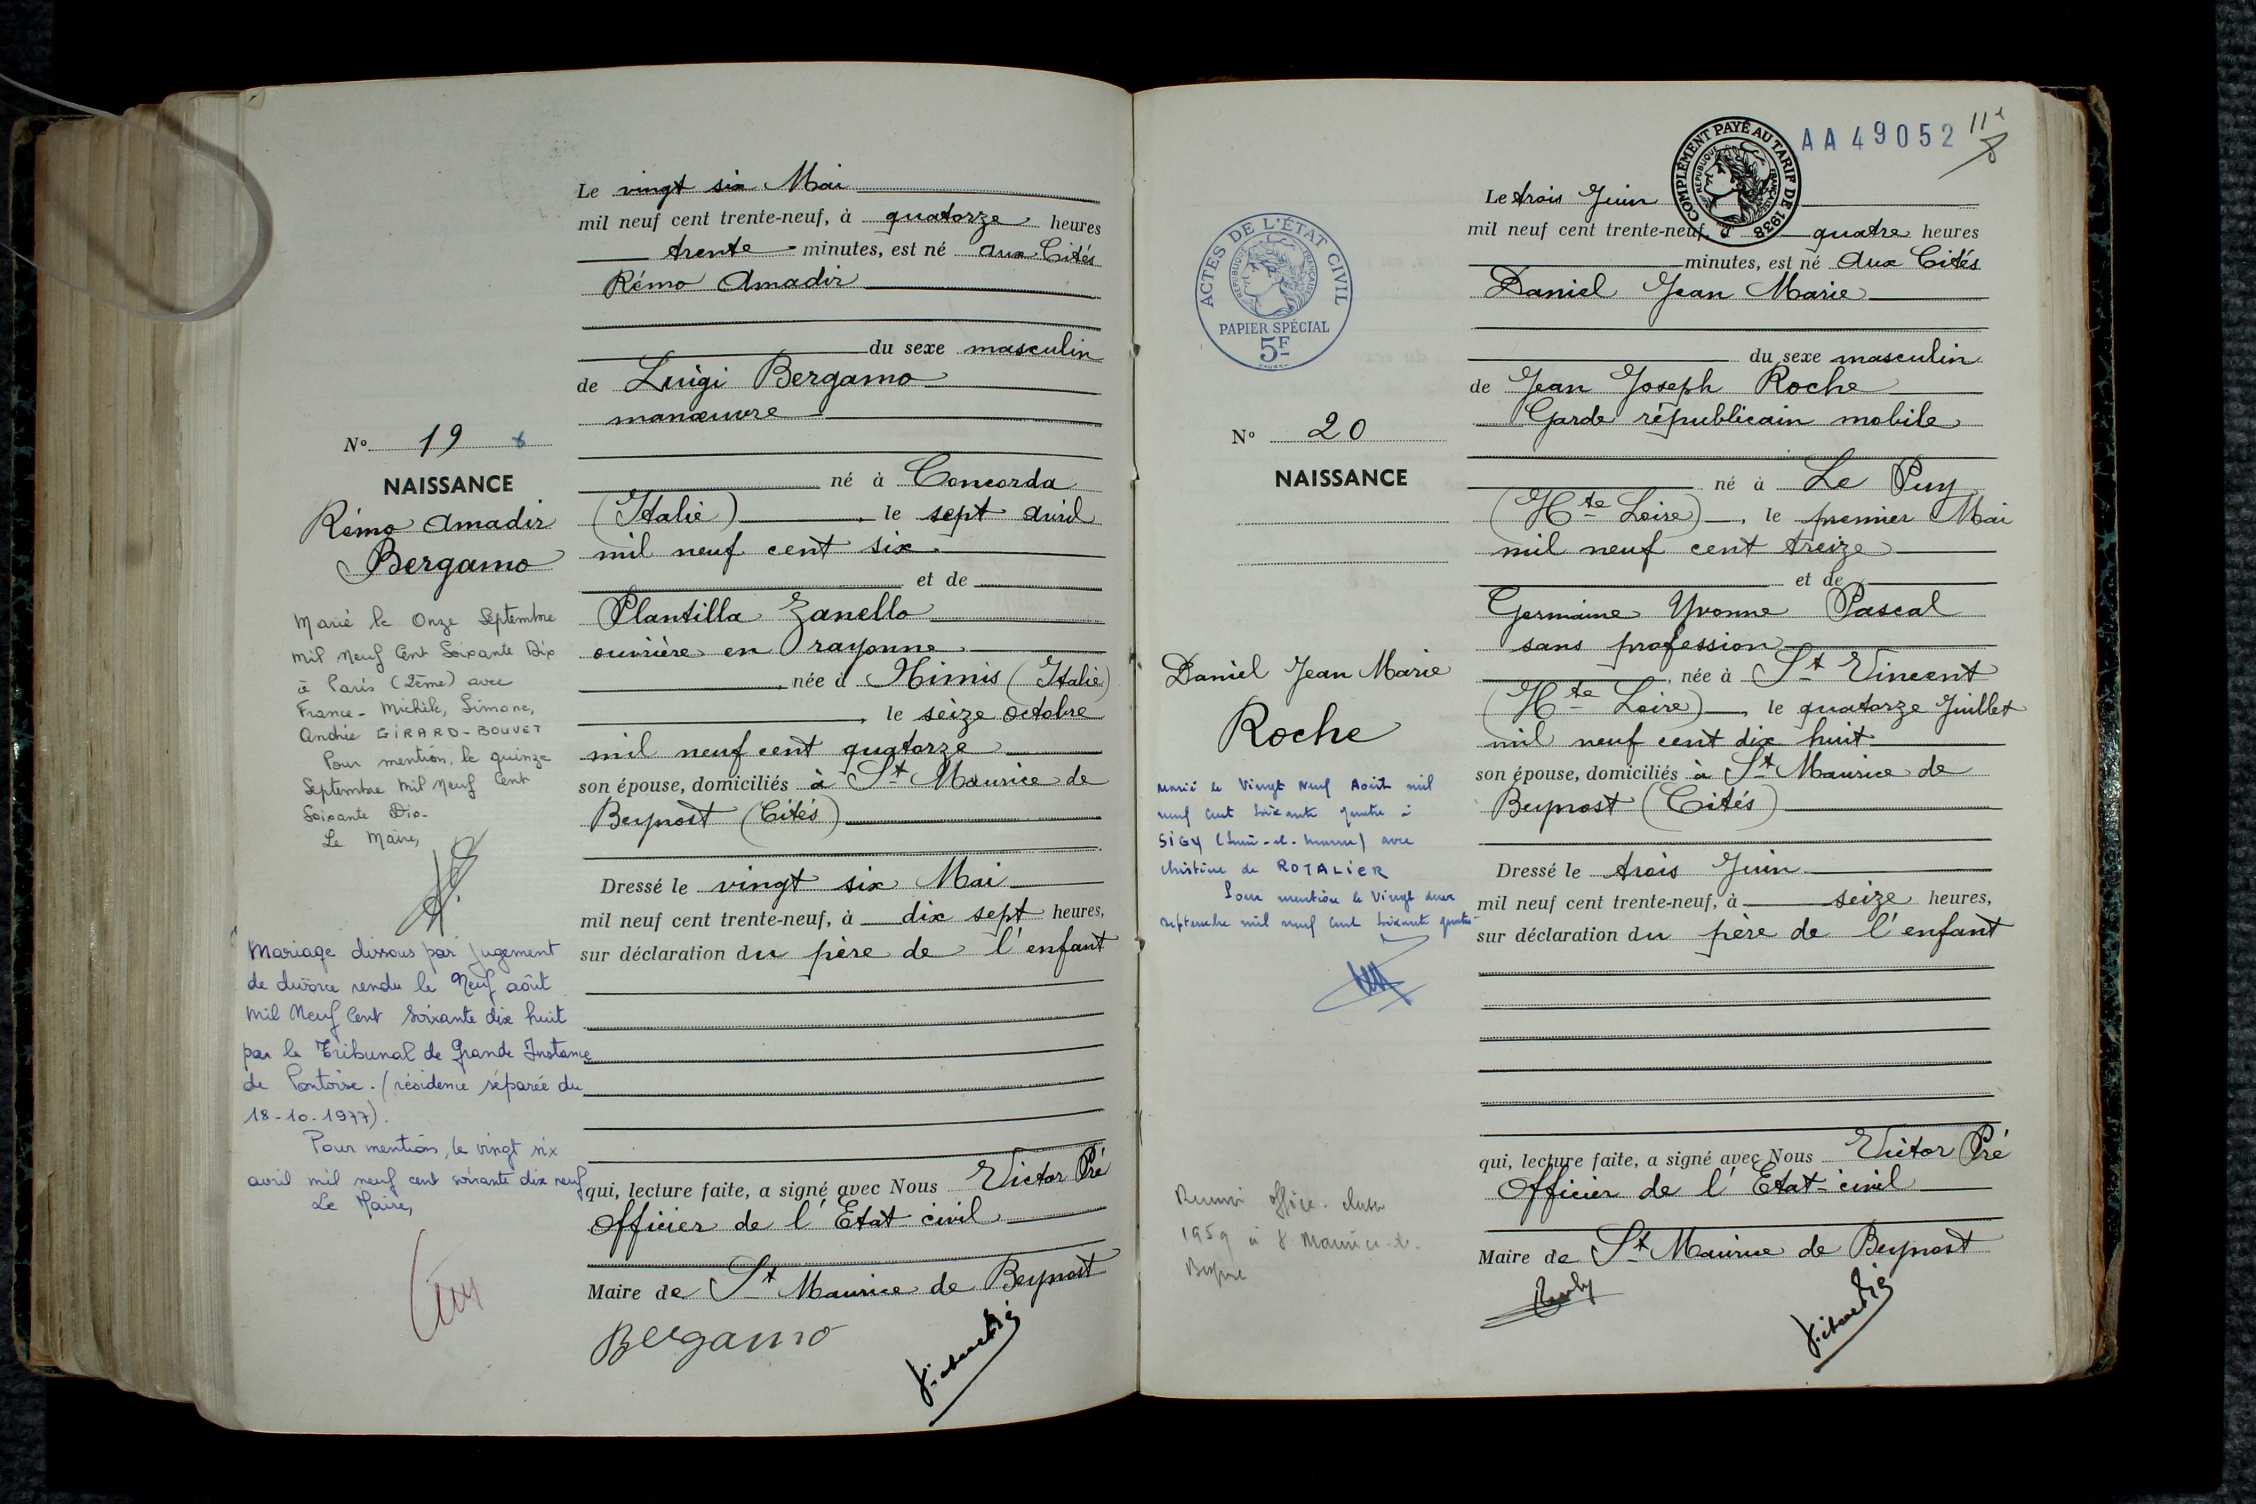 Le vingt six Mai
mil neuf cent trente-neuf, à quatorze heures
trente minutes, est né aux Cités
Rémo Amadir
du sexe masculin
de Luigi Bergamo
manœuvre
né à Concorda
(Italie), le sept avril
mil neuf cent six.
et de
Plantilla Zanello
ouvrière en rayonne
née à Nimis (Italie)
, le seize octobre
mil neuf cent quatorze
son épouse, domiciliés à St Maurice de
Beynost (Cités)
Dressé le vingt six Mai
mil neuf cent trente-neuf, à dix sept heures,
sur déclaration du père de l'enfant
qui, lecture faite, a signé avec Nous Victor Pré
Officier de l'Etat civil
Maire de St Maurice de Beynost
Bergamo
No 19
NAISSANCE
Rémo Amadir
Bergamo
Marié le Onze Septembre
mil Neuf Cent Soixante Dix
à Paris (2ème) avec
France-Michèle, Simone,
Andrée GIRARD-BOUVET
Pour mention, le quinze
Septembre mil Neuf Cent
Soixante Dix-
Le Maire,
Mariage dissous par jugement
de divorce rendu le Neuf août
mil Neuf Cent Soixante dix huit
par le Tribunal de Grande Instance
de Pontoise. (résidence séparée du
18-10-1977).
Pour mention, le vingt six
avril mil neuf cent soixante dix neuf
Le Maire,
AA 49052
COMPLÉMENT PAYÉ AU TARIF DE 1938
RÉPUBLIQUE FRANÇAISE
ACTES DE L'ÉTAT CIVIL
RÉPUBLIQUE FRANÇAISE
PAPIER SPÉCIAL
5F
Le trois Juin
mil neuf cent trente-neuf, à quatre heures
minutes, est né Aux Cités
Daniel Jean Marie
du sexe masculin
de Jean Joseph Roche
Garde républicain mobile
né à Le Puy
(Hte Loire), le premier Mai
mil neuf cent treize
et de
Germaine Yvonne Pascal
sans profession
, née à St Vincent
(Hte Loire), le quatorze Juillet
mil neuf cent dix huit
son épouse, domiciliés à St Maurice de
Beynost (Cités)
Dressé le trois Juin
mil neuf cent trente-neuf, à seize heures,
sur déclaration du père de l'enfant
qui, lecture faite, a signé avec Nous Victor Pré
Officier de l'Etat-civil
Maire de St Maurice de Beynost
No 20
NAISSANCE
Daniel Jean Marie
Roche
Marié le Vingt Neuf Août mil
neuf cent soixante quatre à
SIGY (Seine-et-Marne) avec
Christine de ROTALIER
Pour mention le Vingt deux
septembre mil neuf cent soixante quatre
1959 à